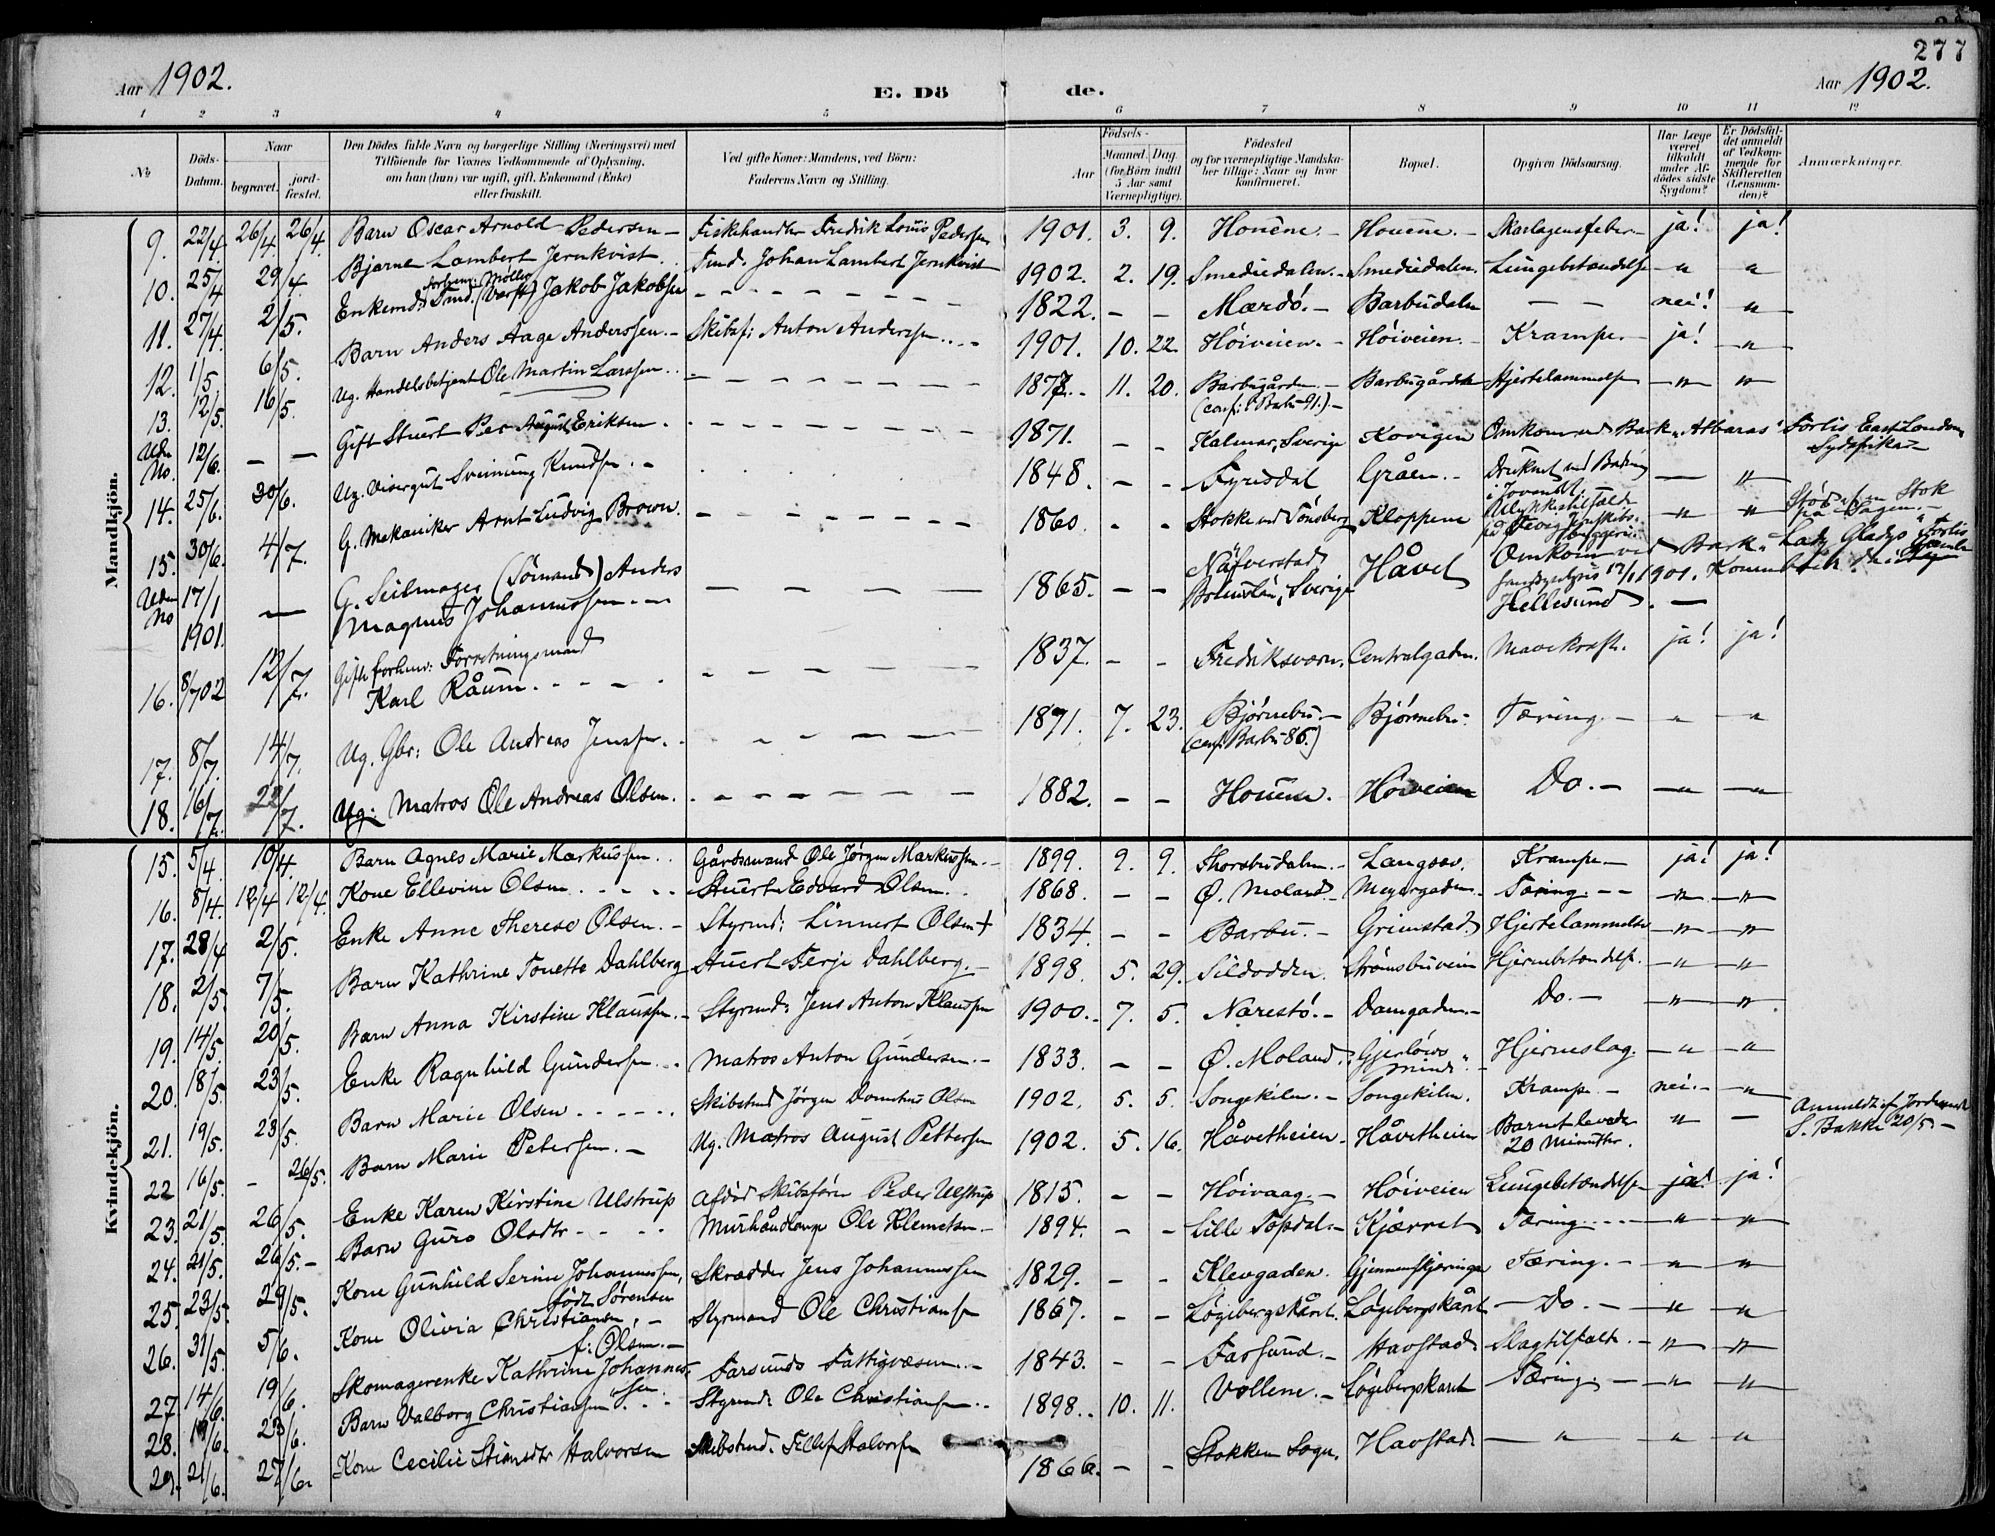 277
Aar 1902.
E. Dö
de.
Aar 1902.
1 2 3 4 5 6 7 8 9 10 11 12
No
Döds-Datum.
Naar
begravet.
jord-fæstet.
Den Dödes fulde Navn og borgerlige Stilling (Næringsvei) med
Tilföiende for Voxnes Vedkommende af Oplysning,
om han (hun) var ugift, gift, Enkemand (Enke)
eller fraskilt.
Ved gifte Koner: Mandens, ved Börn:
Faderens Navn og Stilling.
Födsels-
Aar
Maaned. Dag.
(for Börn indtil
5 Aar samt
Værnepligtige).
Födested
og for værnepligtige Mandska-
ber tillige: Naar og hvor
konfirmeret.
Bopæl.
Opgiven Dödsaarsag.
Har Læge
været
tilkaldt
under Af-
dödes sidste
Sygdom?
Er Dödsfal-
det anmeldt
af Vedkom-
mende for
Skifteretten
(Lensman-
den)?
Anmærkninger.
Mandkjön.
9. 22/4. 26/4. 26/4. Barn Oscar Arnold Pedersen - Fiskehandler Fredrik Louis Pedersen 1901. 3. 9. Houene. - Houene. - Skarlagensfeber - ja! ja!
10. 25/4 29/4. Bjarne Lambert Jernkvist. Tmd. Johan Lambert Jernkvist 1902. 2. 19. Smededalen. - Smededalen. Lungebetændelse - " "
11. 27/4. 2/5. Enkemd: Tmd. (Værft) Jakob Jakobsen - - - 1822. - - Mærdö. - Barbudalen - - nei! "
12. 1/5. 6/5. Barn Anders Aage Anderssen. - Skibsf: Anton Anderssen 1901. 10. 22. Höiveien. - Höiveien. - Krampe. - ja! "
13. 12/5. 16/5. Ug. Handelsbetjent Ole Martin Larssen. - - - 11. 20. Barbugården. - Barbugården Hjertelammelse - " "
(conf: Barbu 91.) -
Uden No. 12/6. - - Gift Stuert Per August Eriksen. - - - 1871. - - Kalmar, Sverige Omkom ved Bark "Atbaras" Forlis East London
Sydafrika -
14. 25/6. 30/6. Ug. Visergut Sveinung Knudsen. - 1848. - - Fyrisdal Gråen. - Druknet ved Badning - "
15. 30/6. 4/7. G. Mekaniker Arnt Ludvig Brown. - - - 1860. - - Stokke ved Tönsberg Kloppene - " " Stöd af en Stok
Uden No 17/1 1901. - G. Seilmager (Sömand) Anders
Magnus Johannessen. - - - - 1865. - - Näfverstad Håvet Omkom ved Bark "Lady Gladys" Forlis
Bohuslän, Sverige 17/1 1901.
Hellesund. -
16. 8/7 02 12/7. Gift forhenv: Forretningsmand
Karl Råum. - - - - 1837. - - Fredriksværn. Centralgaden. Mavekræft. ja! ja!
17. 8/7. 14/7. Ug. Gbr: Ole Andreas Jenssen. - - - 1871. 7. 23. Björnebu. - Björnebu. Tæring. - " "
(conf. Barbu 86.)
18. 16/7. 22/7. Ug: Matros Ole Andreas Olsen. - - - 1882. - - Houene. Höiveien Do. - " "
Kvindekjön.
15. 5/4. 10/4. Barn Agnes Marie Markussen. Gårdmand Ole Jörgen Markussen. - 1899. 9. 9. Thorsbudalen. - Langsæv. Krampe - ja! ja!
16. 8/4. 12/4 12/4. Kone Ellevine Olsen. - - - Stuert Edvard Olsen. - 1868. - - Ö. Moland. - Meyergaden. - Tæring. - - " "
17. 28/4 2/5. Enke Anne Therese Olsen. - Styrmd: Linnert Olsen + 1834. - - Barbu. - Grimstad. Hjertelammelse " "
18. 2/5. 7/5. Barn Kathrine Tonette Dahlberg Stuert Terje Dahlberg. - 1898. 5. 29. Sildodden. Strömsbuveien Hjernebetændelse. " "
19. 14/5. 20/5. Barn Anna Kirstine Klaussen. - Styrmd: Jens Anton Klaussen 1900. - 7. 5. Narestö. - Damgaden. - Do. - " "
20. 18/5. 23/5. Enke Ragnhild Gundersen. - Matros Anton Gundersen. - 1833. - - Ö. Moland. Gjerlöws Minde. Hjerneslag. - " "
21. 19/5. 23/5. Barn Marie Olsen. - - - Skibstmd Jörgen Olsen 1902. 5. 5. Songekilen. - Songekilen. Krampe - nei. - "
22. 16/5. - 26/5. Barn Marie Petersen. - Ug. Matros August Pettersen 1902. 5. 16. Håvetheien - Håvetheien Barnet levede " - Anmeldt af Jordemoder
20 Minutter. S. Bakke 20/5 -
23. 21/5. 26/5. Enke Karen Kirstine Ulstrup Afdöd Skibsförer Peder Ulstrup 1815. - - Höivaag. - Höiveien Lungebetændelse ja! ja!
24. 21/5. 26/5. - Barn Guro Olsdtr - - - Murhåndlanger Ole Klemetsen. - 1894. - - Lille Topdal. - Kjærret Tæring. - - " "
25. 23/5. 29/5. Kone Gunhild Serine Johannessen, Skrædder Jens Johannessen 1829. - - Klevgaden. Gjennemskjæringen Tæring. - " "
född Sörensen
26. 31/5. 5/6. Kone Olivia Christiansen, - Styrmand Ole Christiansen 1867. - - Lögebergskåret. Lögebergskåret - Do. - " "
f: Olsen. -
27. 14/6. 19/6. Skomagerenke Kathrine Johannes-
sen. Farsunds Fattigvæsen. - 1843. - - Farsund. - Havstad Slagtilfælde. - " "
28. 19/6. 23/6. Barn Valborg Christiansen - - - Styrmd: Ole Christiansen. 1898. - 10. 11. Vollene. - Lögebergskaret Tæring. - " "
29. 21/6. 27/6. Kone Cecilie Halvorsen Skibstmd. Tellef Halvorsen 1866. - - Stokken Sogn. Havstad. - " - " "